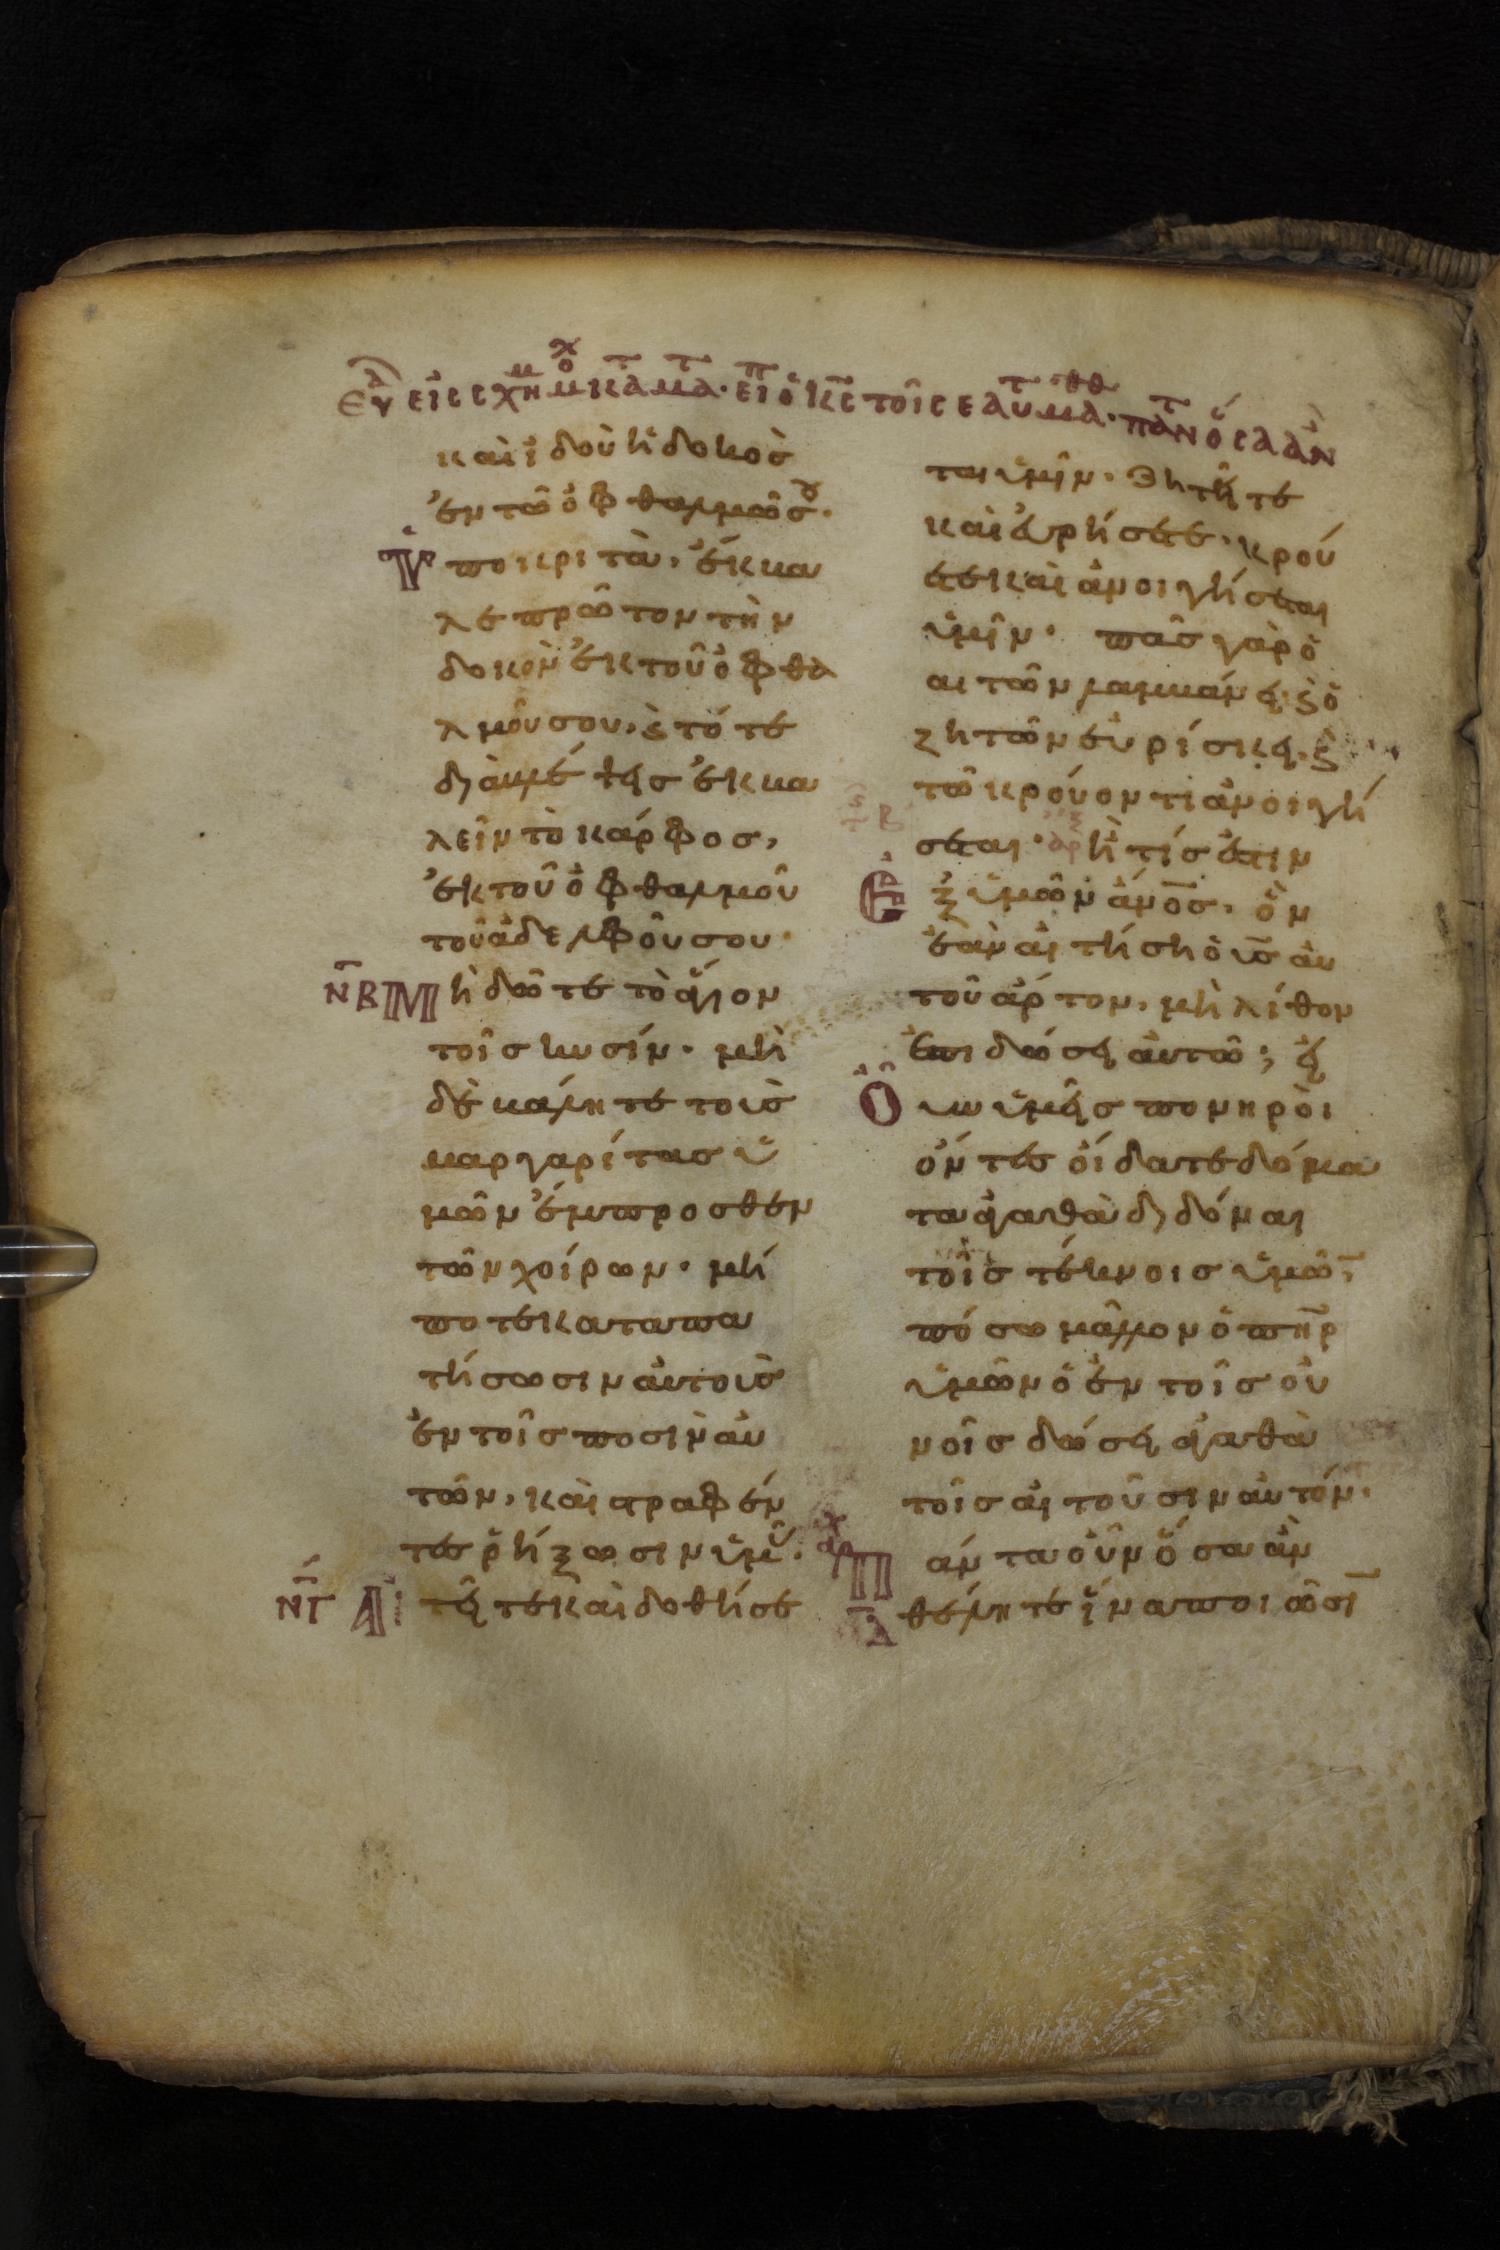 καὶ ἰδοὺ ἡ δοκὸσ
ἐν τῶ ὀφθαλμῶ σου.
Ὑποκριτὰ, ἔκβα
λε πρῶτον τὴν
δοκὸν ἐκ τοῦ ὀφθα
λμοῦ σου, ϗ τότε
διαβλέψεισ ἐκβα
λεῖν τὸ κάρφοσ,
ἐκ τοῦ ὀφθαλμοῦ
τοῦ ἀδελφοῦ σου.
ΝΒ Μὴ δῶτε τὸ ἅγιον
τοῖσ κυσίν. μὴ
δὲ βάλητε τοὺσ
μαργαρίτασ ὑ
μῶν ἔμπροσθεν
τῶν χοίρων. μή
ποτε καταπα
τήσωσιν αὐτοὺσ
ἐν τοῖσ ποσὶν αὐ
τῶν, καὶ στραφέν
τεσ ῥήξωσιν ὑμᾶσ.
ΝΓ Αἰτεῖτε καὶ δοθήσε
ται ὑμῖν. Ζητεῖτε
καὶ εὑρήσετε. κρού
ετε καὶ ἀνοιγήσεται
ὑμῖν. πᾶσ γὰρ ὁ
αἰτῶν λαμβάνει. ϗ ὁ
ζητῶν εὑρίσκει. ϗ
τῶ κρούοντι ἀνοιγή
σεται. ἢ τίσ ἐστιν
Ἐξ ὑμῶν ἀνοσ, ὃν
ἐὰν αἰτήση ὁ υσ αὐ
τοῦ ἄρτον, μὴ λίθον
ἐπιδώσει αὐτῶ; εἰ
Οὖν ὑμεῖσ πονηροὶ
ὄντεσ οἴδατε δόμα
τα ἀγαθὰ διδόναι
τοῖσ τέκνοισ ὑμῶν,
πόσω μᾶλλον ὁ πηρ
ὑμῶν ὁ ἐν τοῖσ οὐ
νοῖσ δώσει ἀγαθὰ
τοῖσ αἰτοῦσιν αὐτόν.
Πάντα οὖν ὅσα ἂν
θέλητε ἵνα ποιῶσι